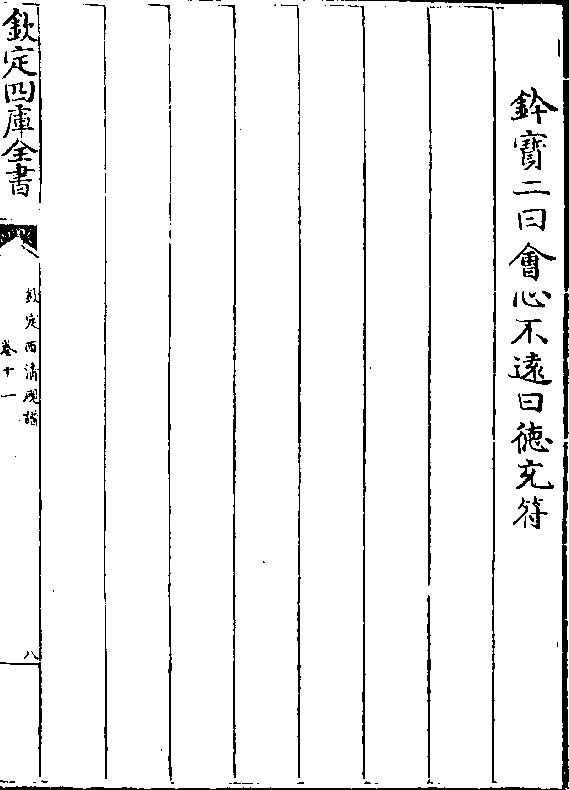 鈐寳二曰㑹心不逺曰徳充符
欽定四庫全書
欽定西清硯譜
卷十一
八